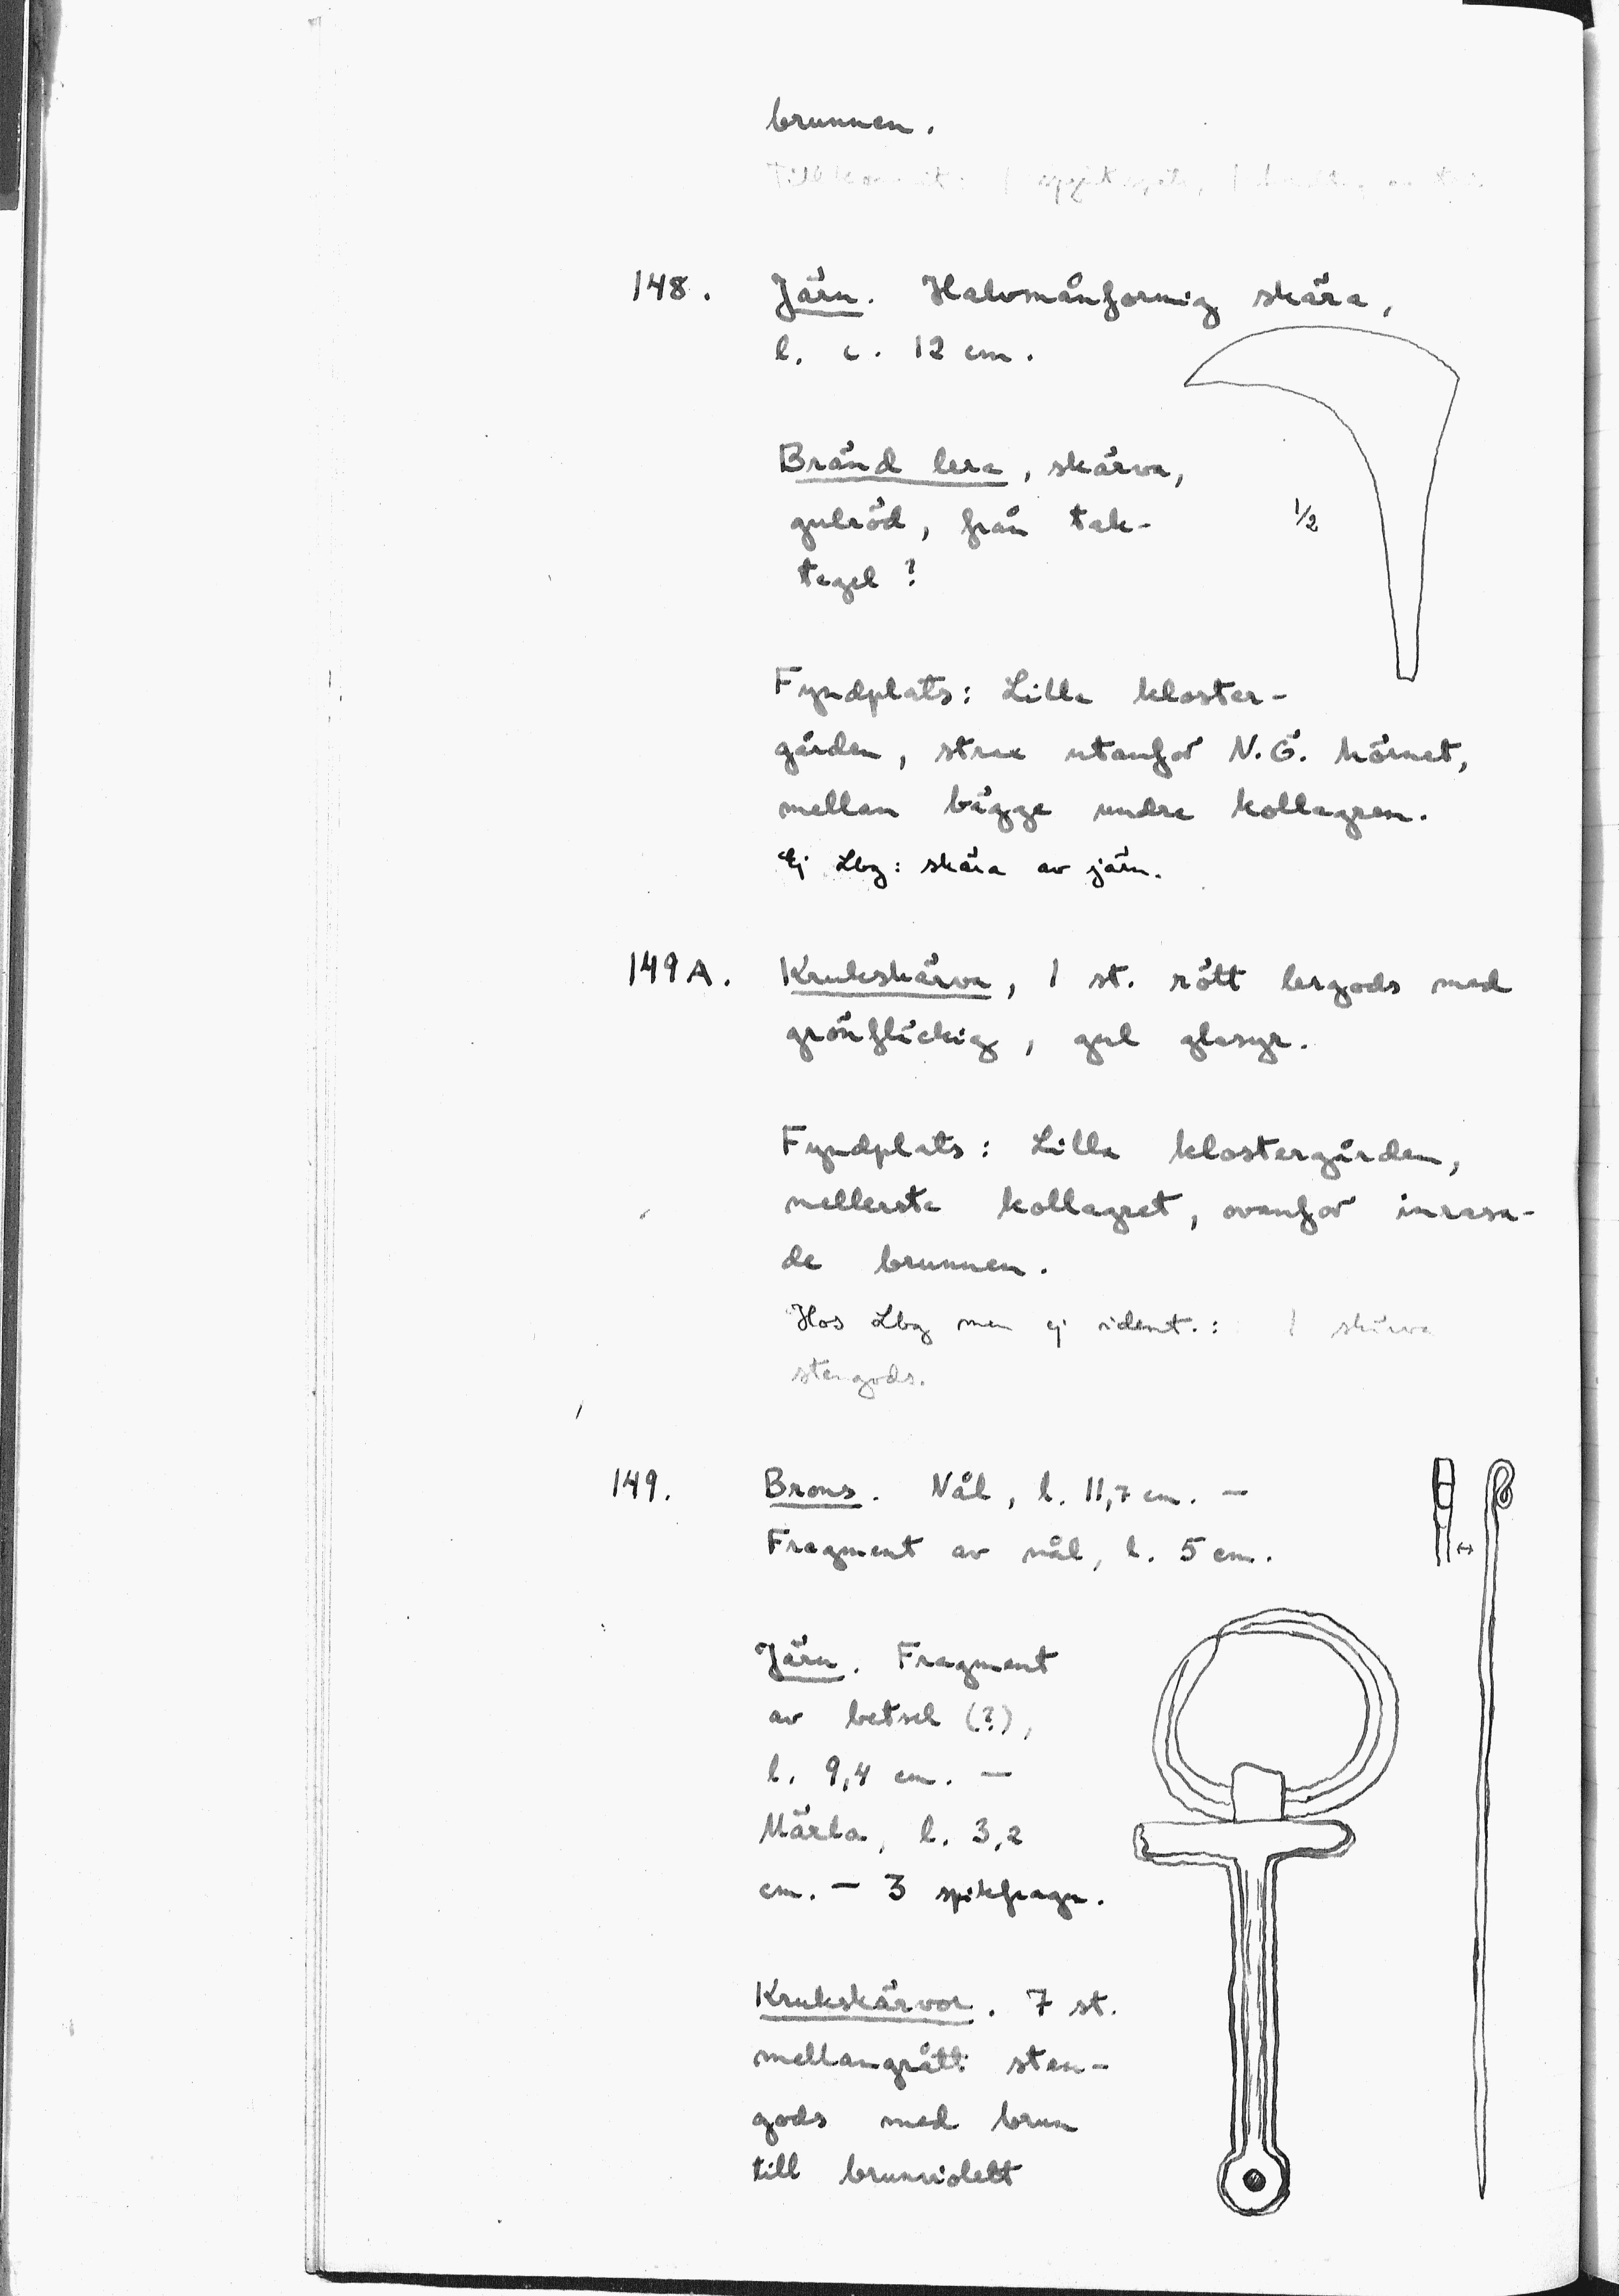 brunnen.
Tillkommit: 1
148. Järn. Halvmånformig skära,
l. c. 12 cm.
Bränd lera, skärva,
gulröd, från tak-
tegel?
1/2
Fyndplats: Lilla kloster-
gården, strax utanför N.Ö. hörnet,
mellan bägge undre kollagren.
Ej Lbg: skära av järn.
149A. Krukskärva, 1 st. rött lergods med
grönfläckig, gul glasyr.
Fyndplats: Lilla klostergården,
mellersta kollagret, ovanför inrasa-
de brunnen.
Hos Lbg men ej ident.: 1 skärva
stengods.
149. Brons. Nål, l. 11,7 cm. –
Fragment av nål, l. 5 cm.
Järn. Fragment
av betsel (?),
l. 9,4 cm. –
Märla, l. 3,2
cm. – 3 spikfragm.
Krukskärvor. 7 st.
mellangrått sten-
gods med brun
till brunviolett